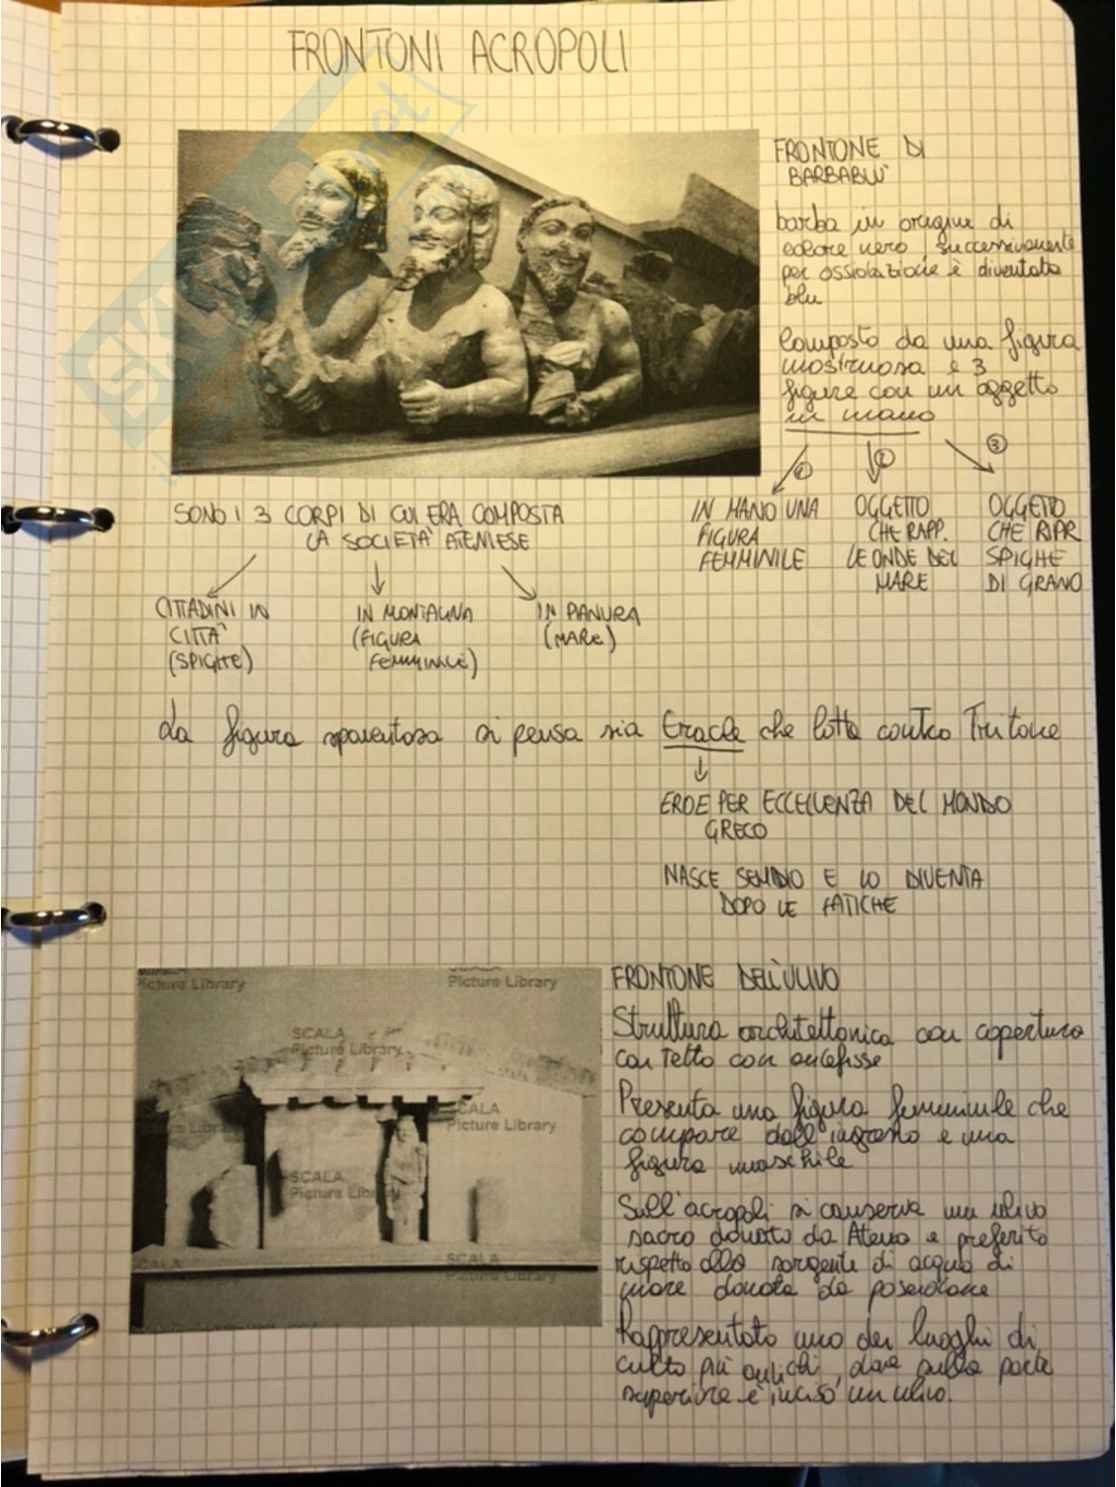 FRONTONI ACROPOLI
FRONTONE DI
BARBABLÙ
barba in origine di
colore nero, successivamente
per ossidazione è diventata
blu
Composto da una figura
mostruosa e 3
figure con un oggetto
in mano
1
2
3
IN MANO UNA
FIGURA
FEMMINILE
OGGETTO
CHE RAPP.
LE ONDE DEL
MARE
OGGETTO
CHE RAPR
SPIGHE
DI GRANO
SONO I 3 CORPI DI CUI ERA COMPOSTA
LA SOCIETÀ ATENIESE
CITTADINI IN
CITTÀ
(SPIGHE)
IN MONTAGNA
(FIGURA
FEMMINILE)
IN PIANURA
(MARE)
La figura spaventosa si pensa sia Eracle che lotta contro Tritone
EROE PER ECCELLENZA DEL MONDO
GRECO
NASCE SEMIDIO E LO DIVENTA
DOPO LE FATICHE
FRONTONE DELL'ULIVO
Struttura architettonica con copertura
con tetto con antefisse
Presenta una figura femminile che
compare dall'ingresso e una
figura maschile
Sull'acropoli si conserva un ulivo
sacro donato da Atena e preferito
rispetto alla sorgente di acqua di
mare donata da poseidone
Rappresentato uno dei luoghi di
culto più antichi, dove sulla parte
superiore è inciso un ulivo.
Picture Library
Picture Library
SCALA
Picture Library
SCALA
Picture Library
SCALA
Picture Library
SCALA
SCALA
Picture Library